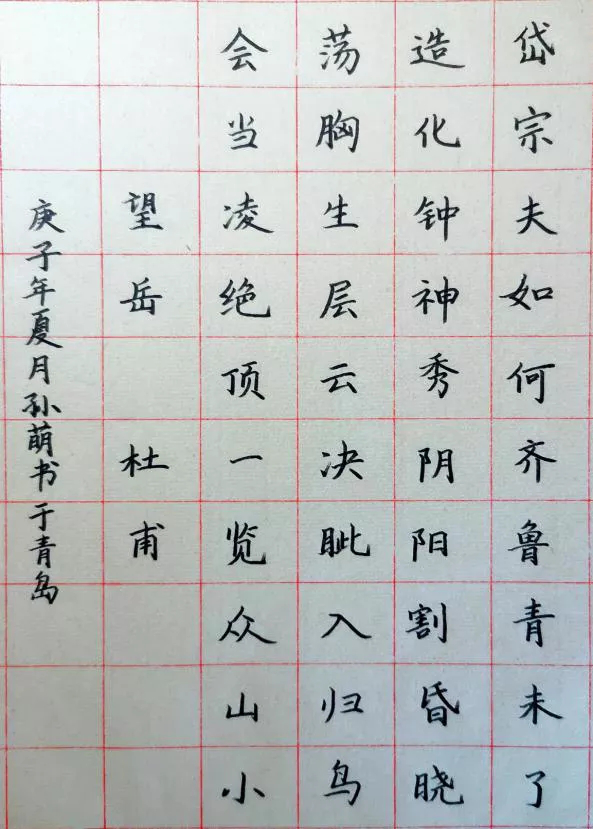 岱宗夫如何齐鲁青未了
造化钟神秀阴阳割昏晓
荡胸生层云决眦入归鸟
会当凌绝顶一览众山小
望岳 杜甫
庚子年夏月孙萌书于青岛